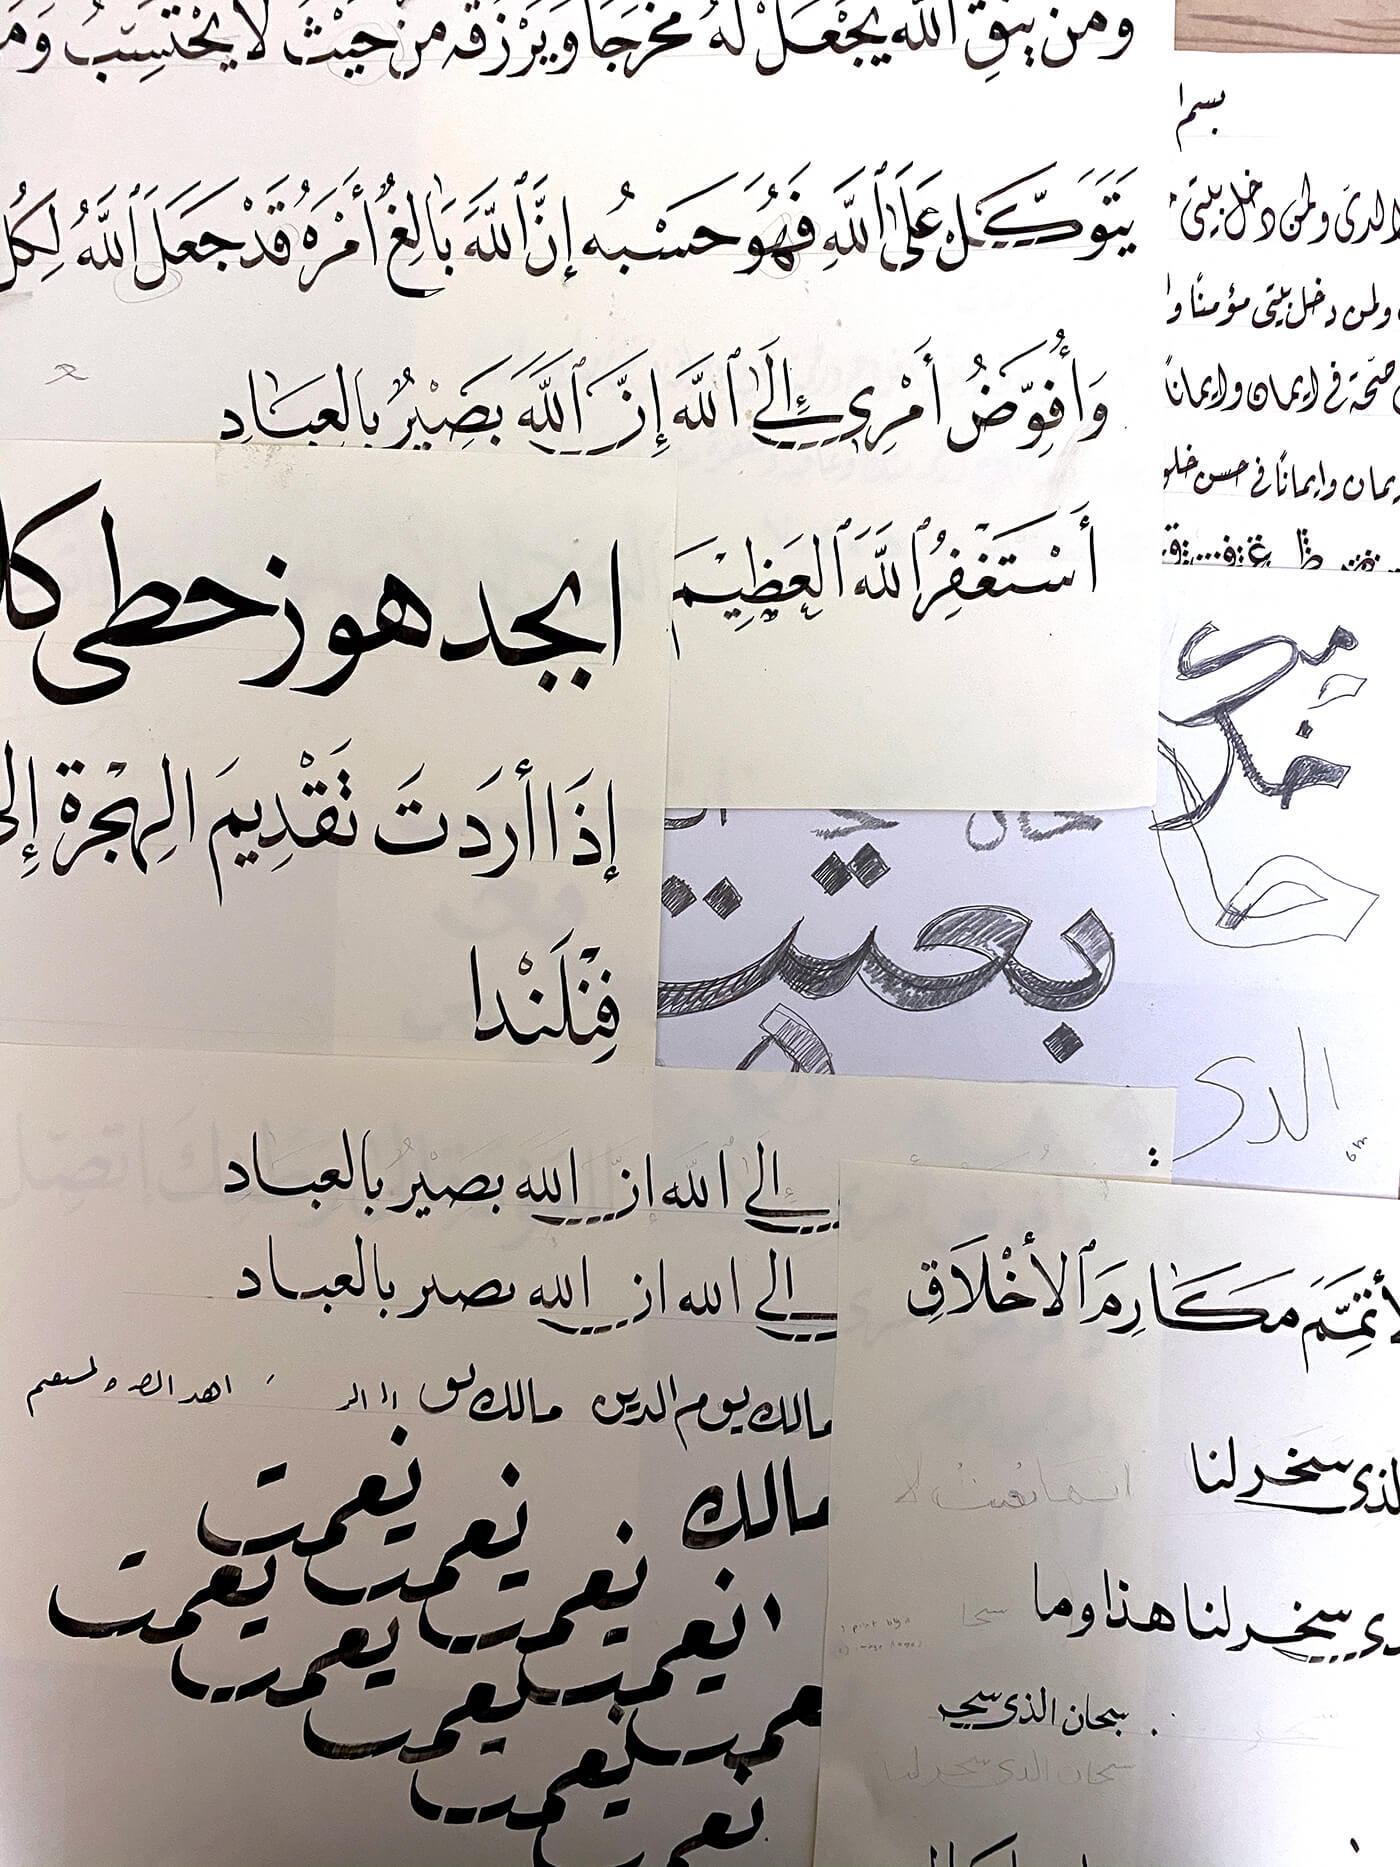 ومن يتق الله يجعل له مخرجا ويرزقه من حيث لا يحتسب ومن
يَتَوَكَّل عَلَى ٱللَّهِ فَهُوَ حَسْبُه إِنَّ ٱللَّهَ بَالِغُ أَمْرَهُ قَدْ جَعَلَ ٱللَّهُ لِكُل
وَأُفَوِّضُ أَمْرِي إِلَى ٱللَّه إِنَّ ٱللَّهَ بَصِيْرٌ بالعِبَادِ
أَسْتَغْفِرُ ٱللَّهَ ٱلعَظِيْمَ
بسم ا
الدى ولمن دخل بيتى
ولمن دخل بيتى مؤمنًا وا
صحة فى ايمان وايمانًا
يمان وايمانًا فى حسن خلو
ابجد هوز حطي كل
إِذَا أَرَدتَ تَقْدِيمَ الهِجْرةِ إلى
فِنْلَنْدا
بعثت
الدى
إلى الله إن الله بصير بالعباد
إلى الله ان الله بصير بالعباد
مالك يوم الدين مالك
مالك
نعمت
نعمت
نعمت
نعمت
نعمت
نعمت
نعمت
نعمت
نعمت
لأتمِّمَ مَكَارِمَ ٱلأَخْلَاقِ
لذى سخر لنا
انما بعثت لا
ذى سخر لنا هذا وما
سبحان الذى سخر
سبحان الذى سخر لنا